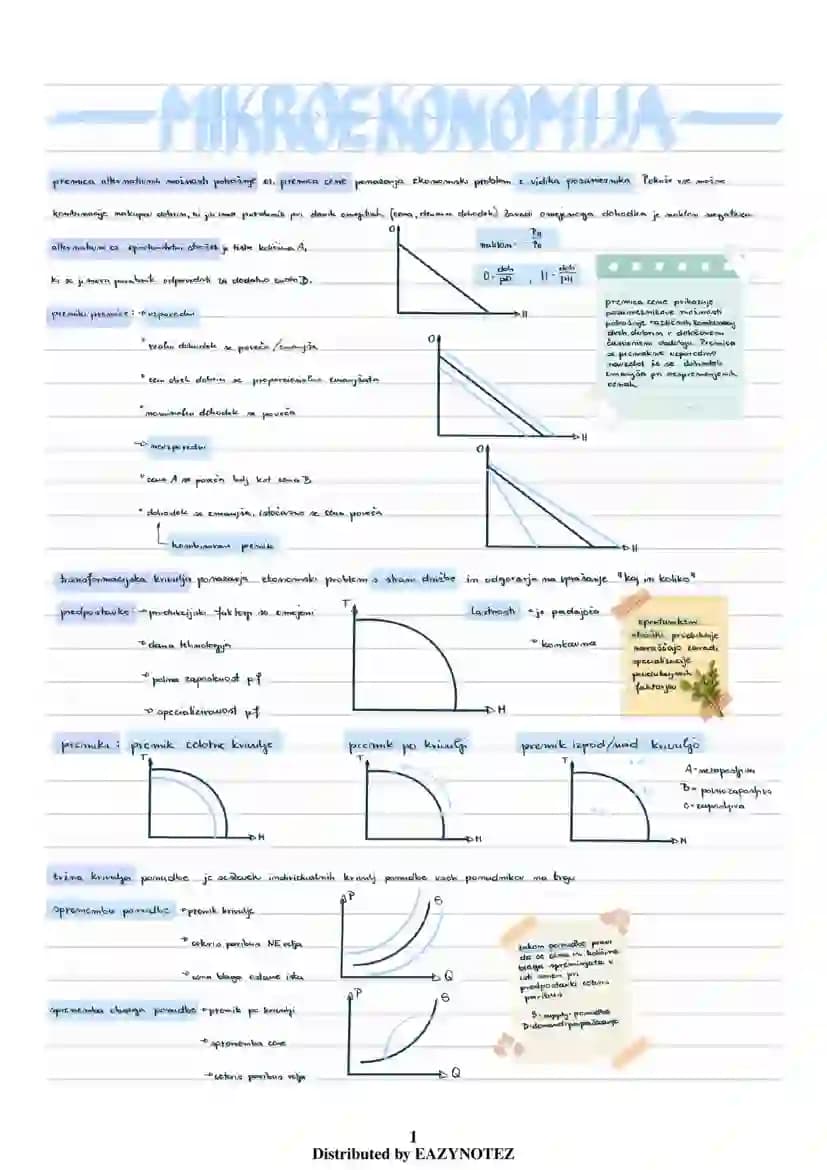 MIKROEKONOMIJA
premica alternativnih možnosti potrošnje oz. premica cene ponazarja ekonomski problem z vidika posameznika. Pokaže vse možne
kombinacije nakupov dobrin, ki ju ima potrošnik pri danih omejitvah (cena, denarni dohodek) Zaradi omejenega dohodka je naklon negativen
alternativni oz oportunitetni strošek je tista količina A,
ki se ji mora potrošnik odpovedati za dodatno enoto B.
O
H
naklon = PH / PO
O = doh / pO , H = doh / pH
premica cene prikazuje
posameznikove možnosti
potrošnje različnih kombinacij
dveh dobrin v določenem
časovnem obdobju. Premica
se premakne vzporedno
navzdol če se dohodek
zmanjša pri nespremenjenih
cenah
premiki premice: → vzporedni
* realni dohodek se poveča / zmanjša
* cen obeh dobrin se proporcionalno zmanjšata
* nominalni dohodek se poveča
O
H
→ nevzporedni
* cena A se poveča bolj kot cena B
* dohodek se zmanjša, istočasno se cena poveča
kombiniran premik
O
H
transformacijska krivulja ponazarja ekonomski problem s strani družbe in odgovarja na vprašanje "kaj in koliko"
predpostavke: → produkcijski faktorji so omejeni
→ dana tehnologija
→ polna zaposlenost p.f
→ specializiranost p.f
T
H
lastnosti → je padajoča
→ konkavna
oportunitetni
stroški produkcije
naraščajo zaradi
specializacije
produkcijskih
faktorjev
premiki: premik celotne krivulje
premik po krivulji
premik izpod/nad krivuljo
T
H
T
H
T
H
A - nezaposljiva
B - polnozaposljiva
C - zaposljiva
tržna krivulja ponudbe je seštevek individualnih krivulj ponudbe vseh ponudnikov na trgu
sprememba ponudbe → premik krivulje
→ ceteris paribus NE velja
→ cena blaga ostane ista
P
S
Q
zakon ponudbe pravi
da se cena in količina
blaga spreminjata v
isti smeri pri
predpostavki ceteris
paribus
S - supply - ponudba
D - demand - povpraševanje
sprememba obsega ponudbe → premik po krivulji
→ sprememba cene
→ ceteris paribus velja
P
S
Q
1
Distributed by EAZYNOTEZ